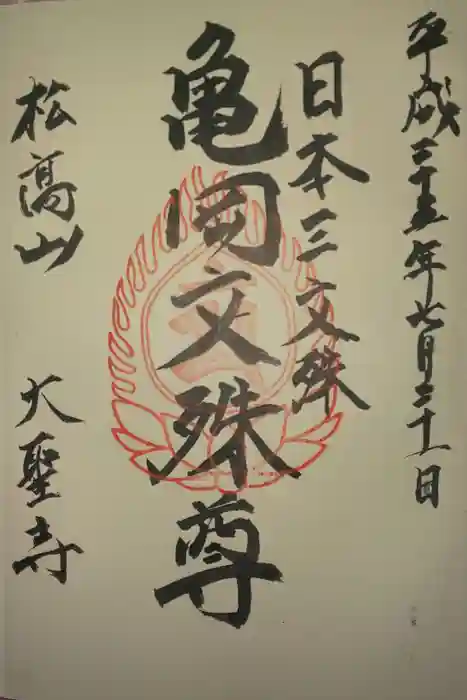 平成二十五年七月二十一日
日本三文殊
亀岡文殊尊
松高山 大聖寺